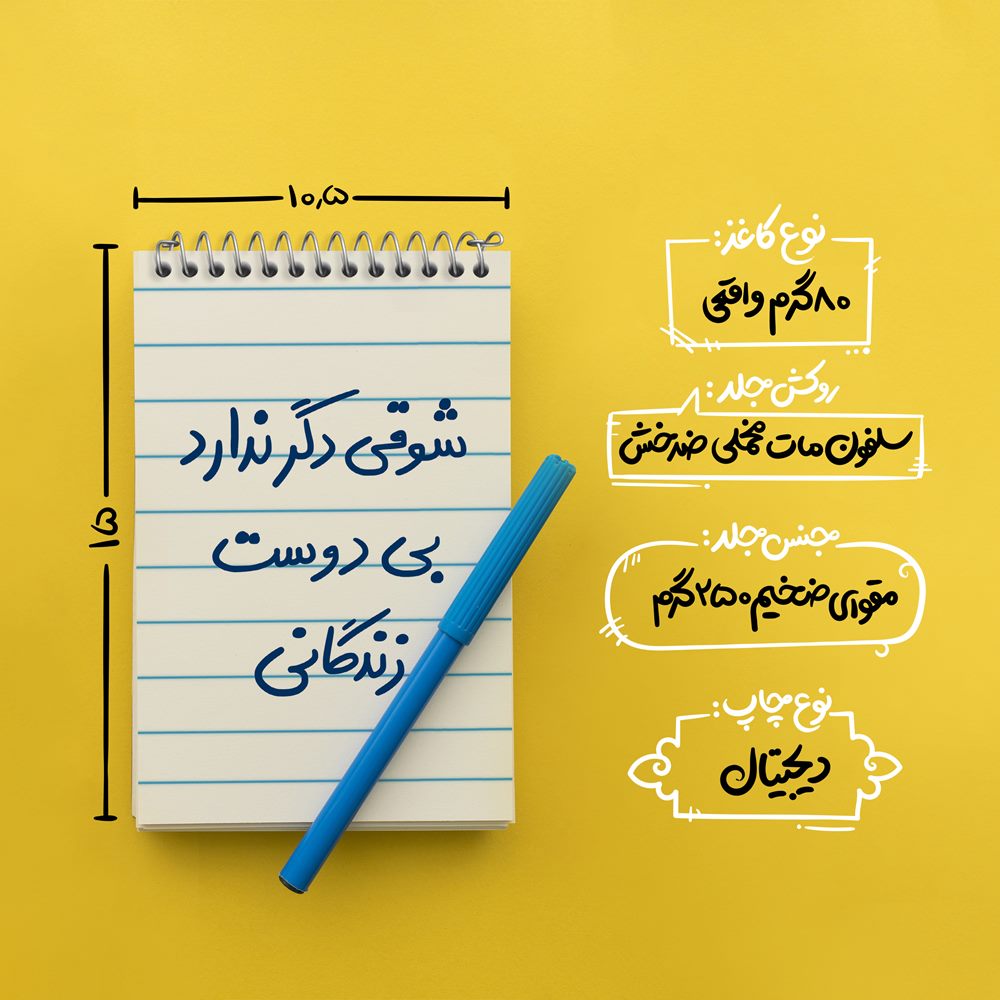 ۱۰٫۵
۱۵
شوقی دگر ندارد
بی دوست
زندگانی
نوع کاغذ:
۸۰ گرم واقعی
روکش جلد:
سلفون مات مخملی ضدخش
جنس جلد:
مقوای ضخیم ۲۵۰ گرم
نوع چاپ:
دیجیتال